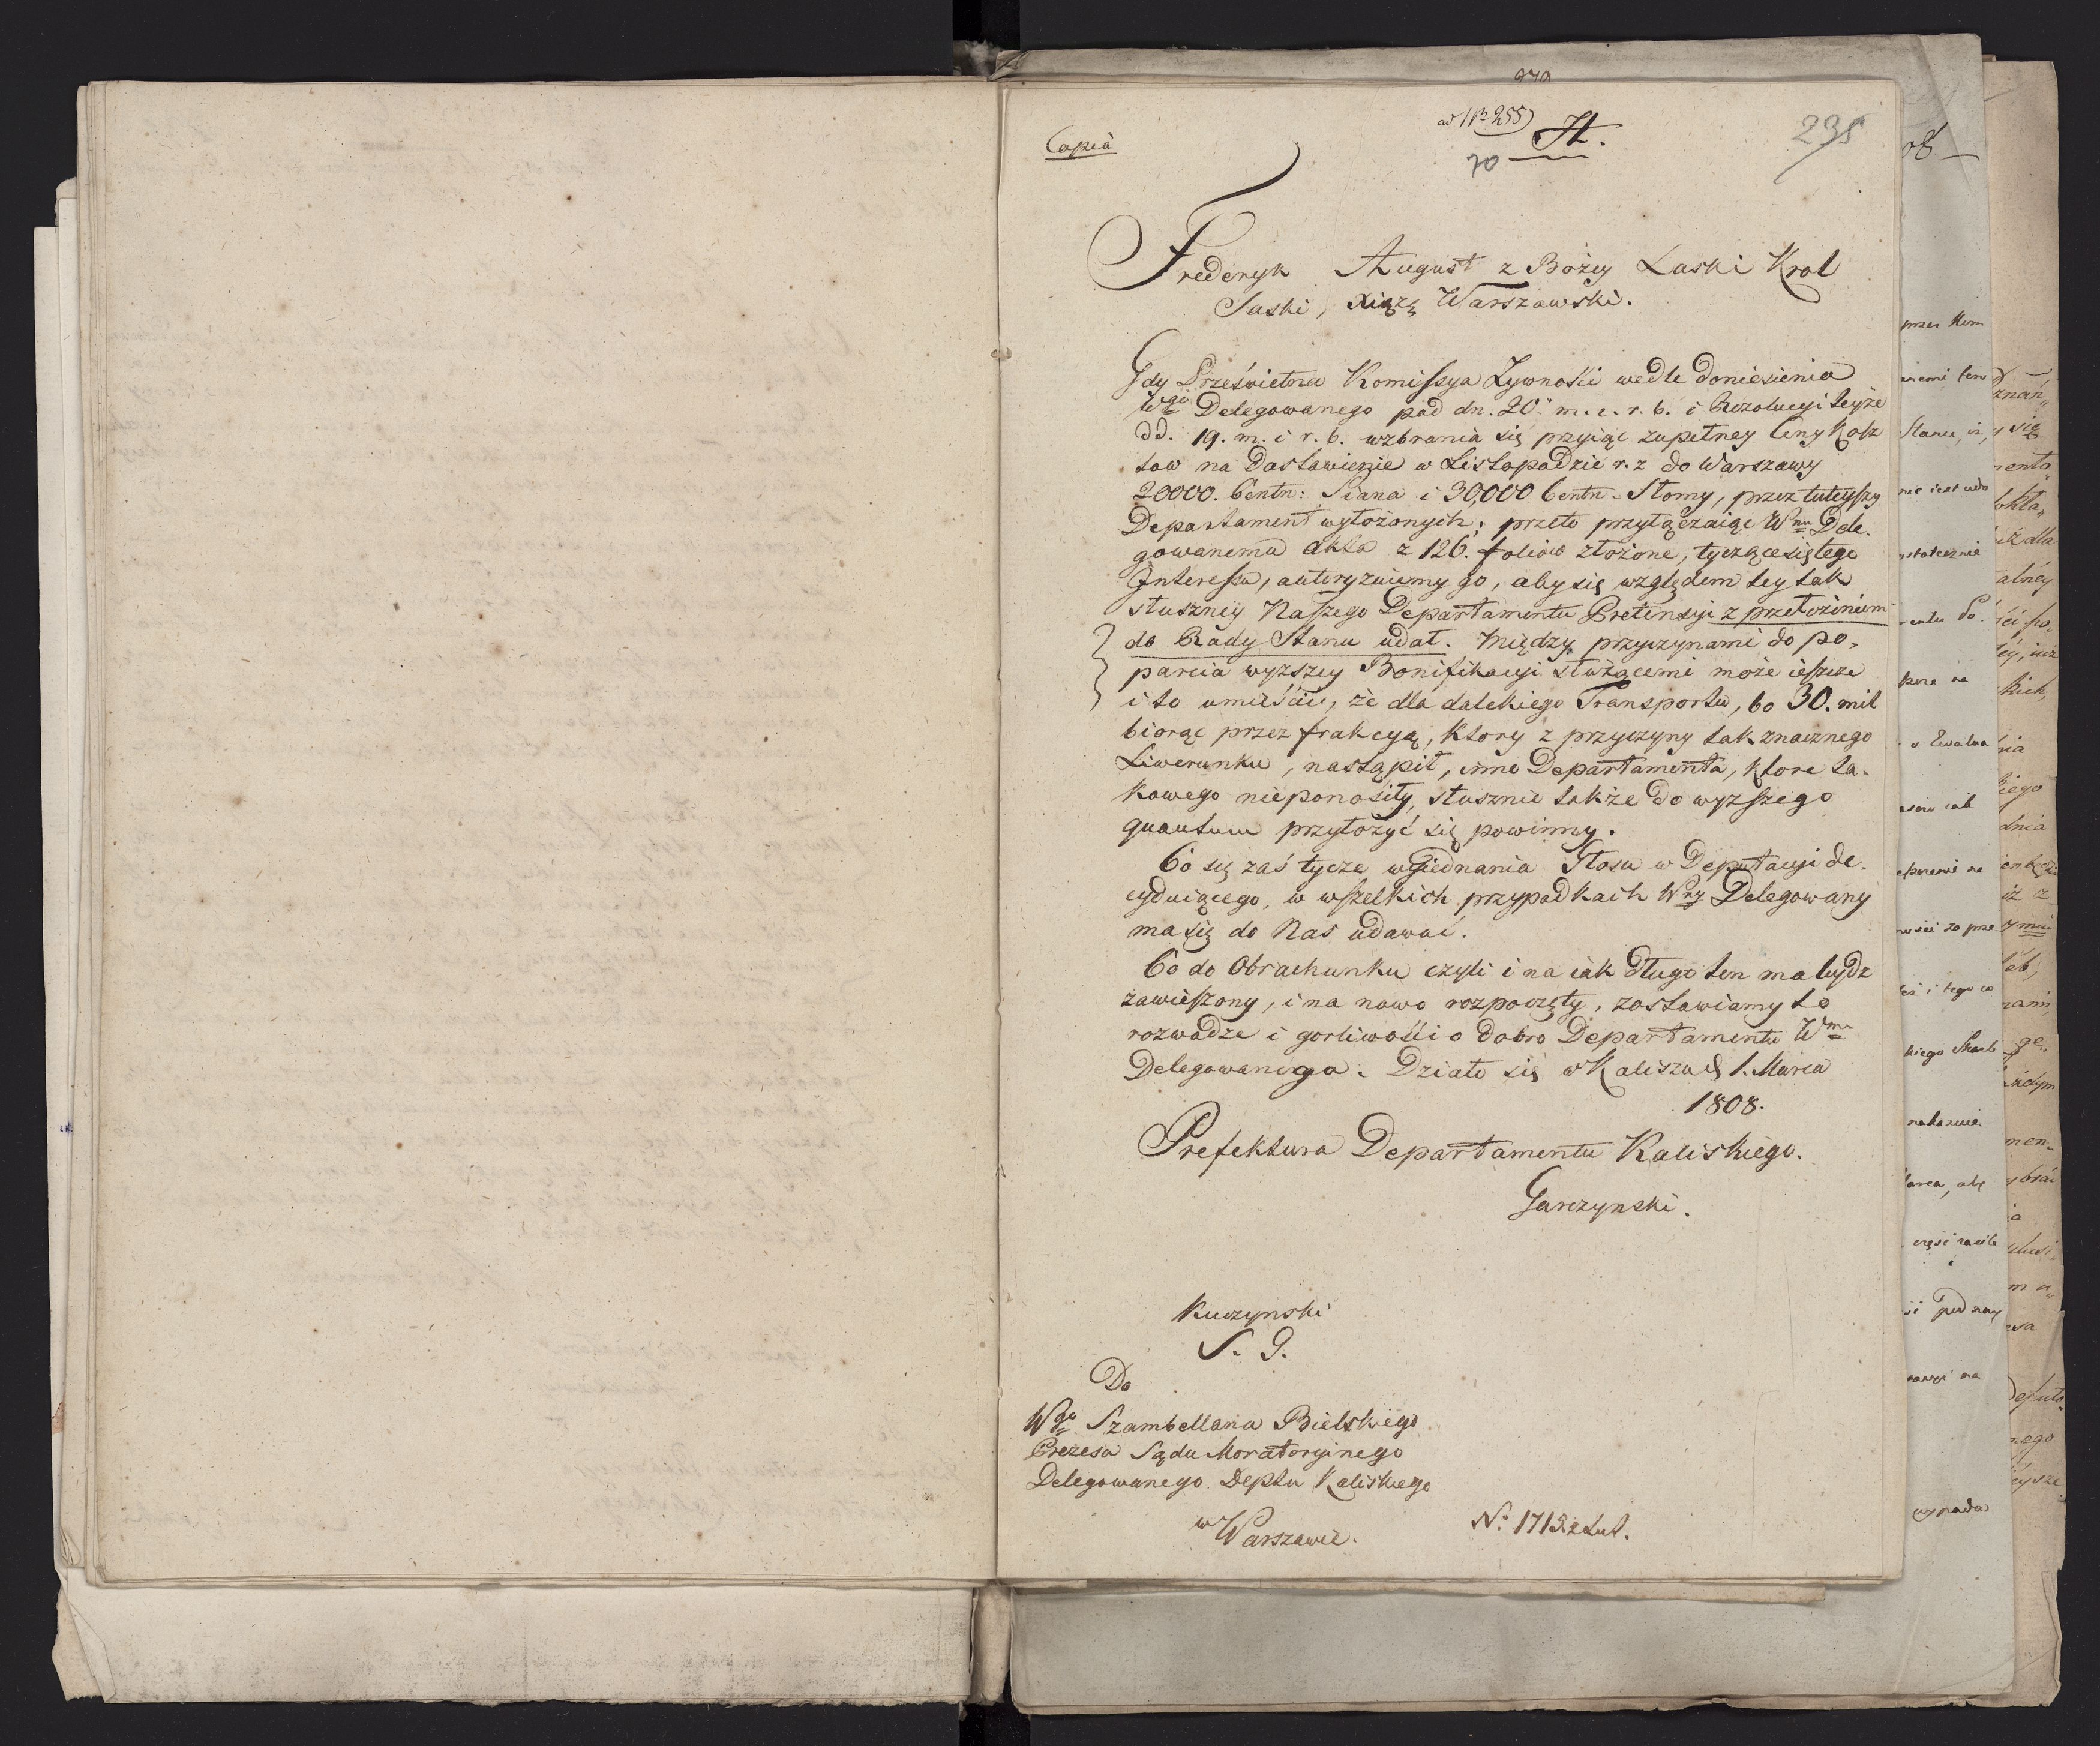 Copia
ad Nr 255
A.
70
235
Frederyk August z Bożey Łaski Krol
Saski, Xiążę Warszawski.
Gdy Prześwietna Komissya Żywności wedle doniesienia
Wgo Delegowanego pod dn. 20. m. z. r. b. i Rezolucyi teyże
dd. 19. m. i r. b. wzbrania się przyiąć zupełney Ceny Kosz
tow na Dostawienie w Listopadzie r. z do Warszawy
20000. Centn: Siana i 30,000 Centn. Słomy, przez tuteyszy
Departament wyłożonych; przeto przyłączaiąc Wmu Dele.
gowanemu akta z 126. foliow złożone, tyczącesię tego
Interessu, autoryzuiemy go, aby się względem tey tak
słuszney Naszego Departamentu Pretensyi z przełożeniem
do Rady Stanu udał. Między przyczynami do po,
parcia wyzszey Bonifikacyi służącemi może ieszcze
i to umieścić, że dla dalekiego Transportu, bo 30. mil
biorąc przez frakcyą, ktory z przyczyny tak znacznego
Liwerunku, nastąpił, inne Departamenta, ktore ta.
kowego nieponosiły, słusznie także do wyzszego
quantum przyłożyć się powinny.
Co się zaś tycze wyiednania Głosu w Deputacyi de.
cyduiącego, w wszelkich przypadkach Wny Delegowany
ma się do Nas udawać.
Co do Obrachunku czyli i na iak długo ten ma bydz
zawieszony, i na nowo rozpoczęty, zostawiamy to
rozwadze i gorliwości o dobro Departamentu Wmu
Delegowanego. Działo się w Kaliszu d. 1. Marca
1808.
Prefektura Departamentu Kaliskiego.
Garczynski.
Kuczynski
S. G.
Do
Wgo Szambellana Bielskiego
Prezesa Sądu Moratoryinego
Delegowanego Deptu Kaliskiego
w Warszawie.
No 1715. z Lut.